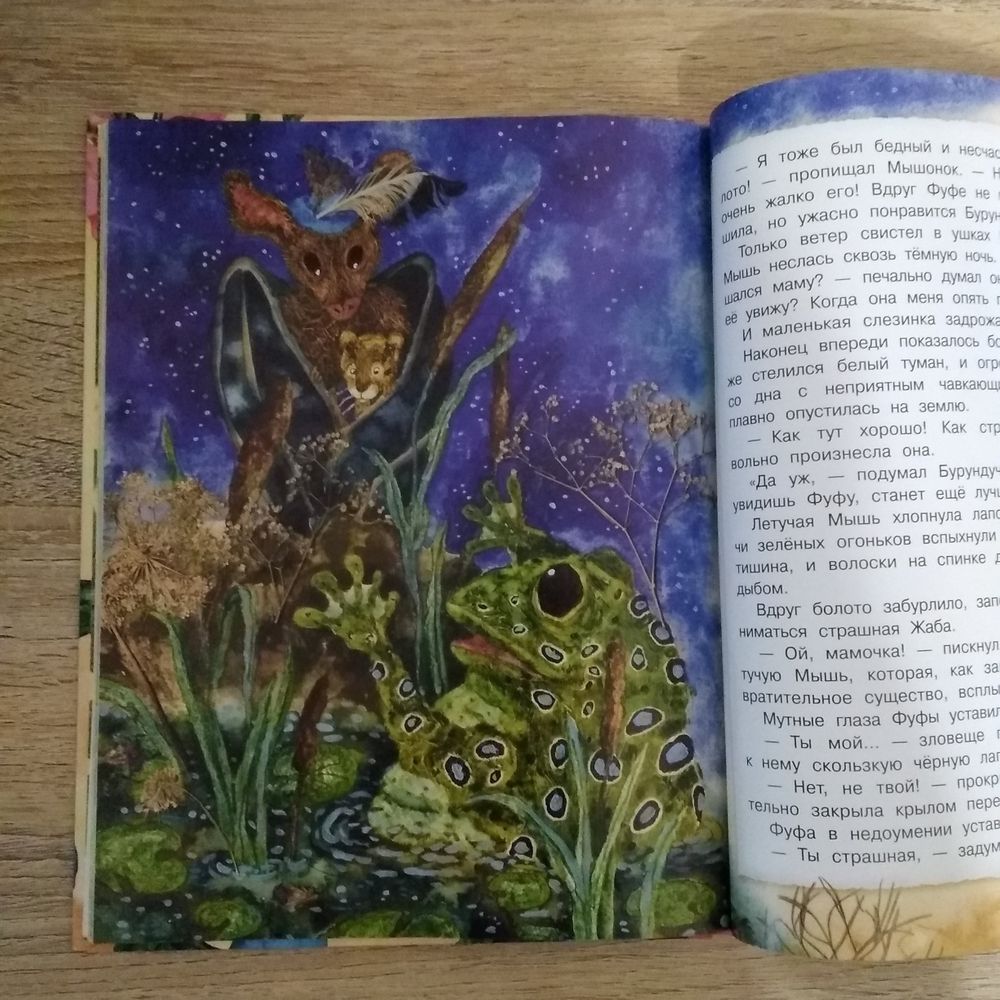 — Я тоже был бедный и
лото! — пропищал Мышонок. —
очень жалко его! Вдруг Фуфе не
шила, но ужасно понравится
Только ветер свистел в ушках
Мышь неслась сквозь тёмную ночь.
шался маму? — печально думал
её увижу? Когда она меня опять
И маленькая слезинка
Наконец впереди показалось
же стелился белый туман, и
со дна с неприятным
плавно опустилась на землю.
— Как тут хорошо! Как
вольно произнесла она.
«Да уж, — подумал
увидишь Фуфу, станет ещё
Летучая Мышь хлопнула
чи зелёных огоньков вспыхнули
тишина, и волоски на спинке
дыбом.
Вдруг болото забурлило,
ниматься страшная Жаба.
— Ой, мамочка! —
тучую Мышь, которая, как
вратительное существо,
Мутные глаза Фуфы
— Ты мой... — зловеще
к нему скользкую чёрную
— Нет, не твой! —
тельно закрыла крылом
Фуфа в недоумении
— Ты страшная, —